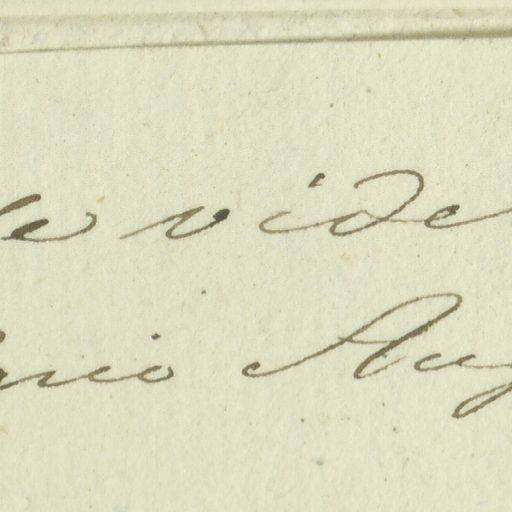 vide
nio Aug